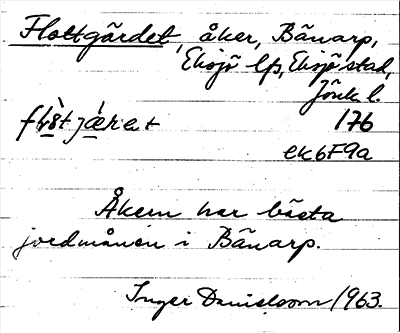 Flottgärdet, åker, Bänarp,
Eksjö lfs, Eksjö stad,
Jönk. l.
176
ek6F9a
Åkern har bästa
jordmånen i Bänarp.
Inger Danielsson 1963.